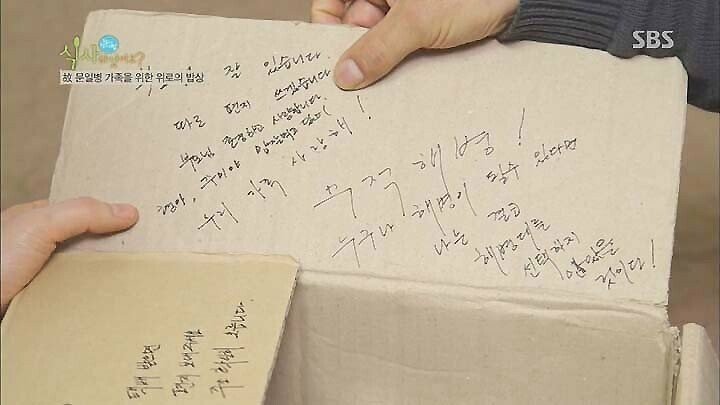 식사하셨어요?
SBS
故 문일병 가족을 위한 위로의 밥상
잘 있습니다.
따로 편지 쓰겠습니다
부모님 존경하고 사랑합니다.
우리 가족 사랑해!
무적해병!
누구나 해병이 될수 있다면
나는 결코
해병대를
선택하지
않았을
것이다!
택배 받으면
편지 보내주세요